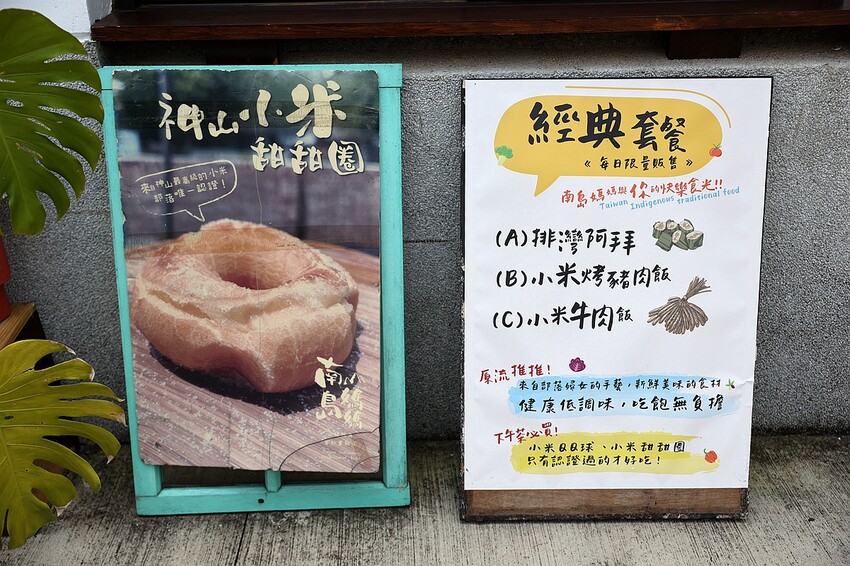 神山小米
甜甜圈
來自神山最高級的小米
部落唯一認證！
南島小媽媽
經典套餐
《每日限量販售》
南島媽媽與你的快樂食光!!
Taiwan Indigenous traditional food
(A)排灣阿拜
(B)小米烤豬肉飯
(C)小米牛肉飯
原流推推!
來自部落婦女的手藝，新鮮美味的食材
健康低調味，吃飽無負擔
下午茶必買!
小米QQ球、小米甜甜圈
只有認證過的才好吃！